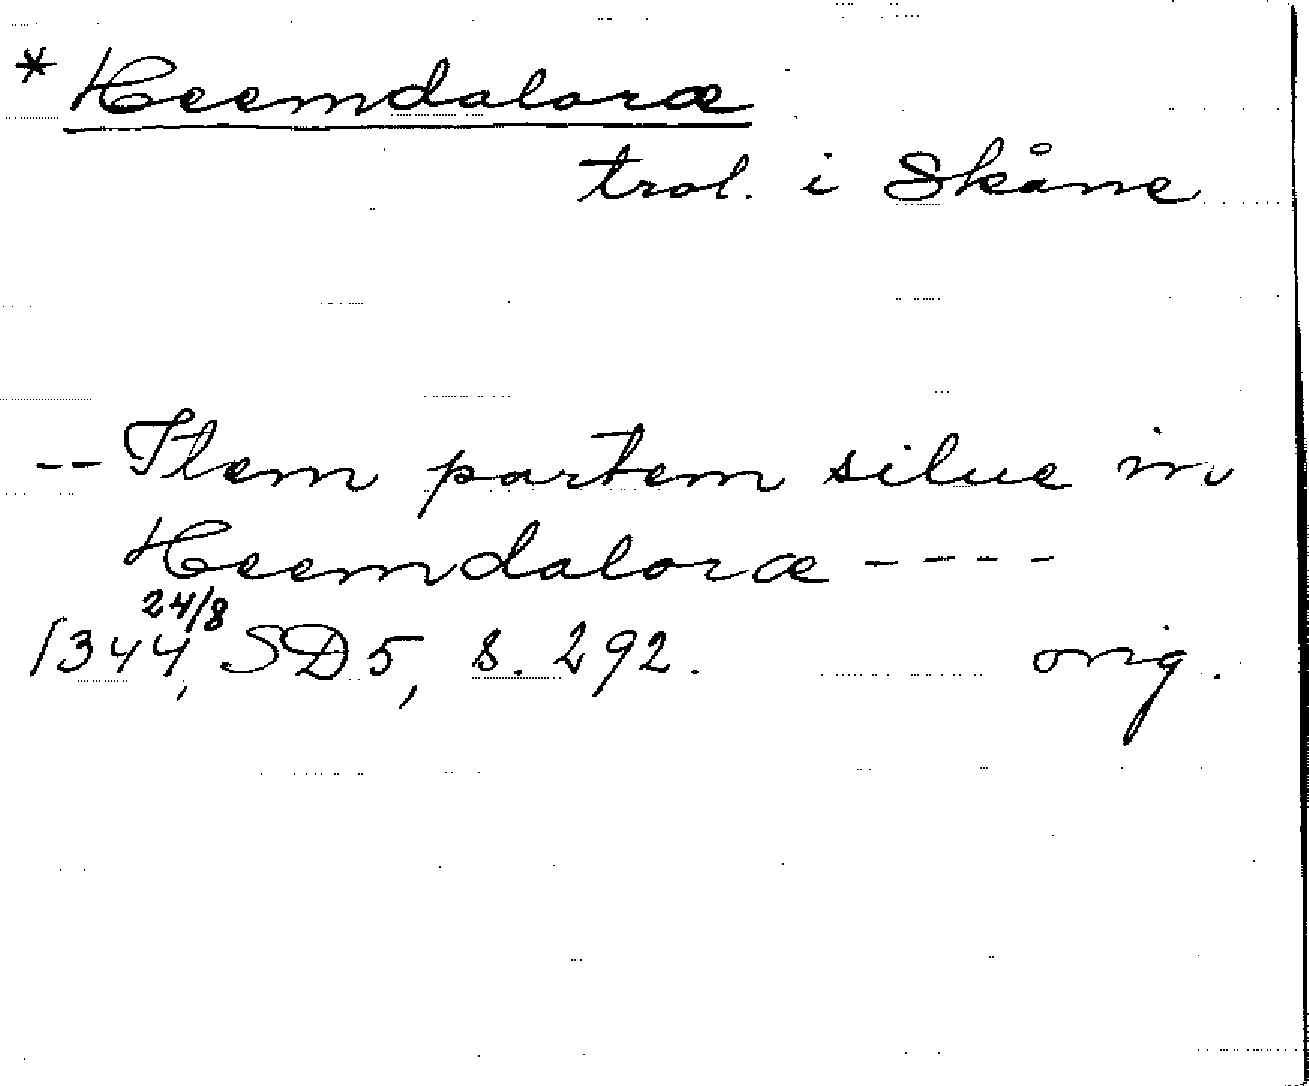 * Heemdaloræ
trol. i Skåne
-- Item partem silue in
Heemdaloræ ----
24/8
1344, SD5, s. 292. orig.